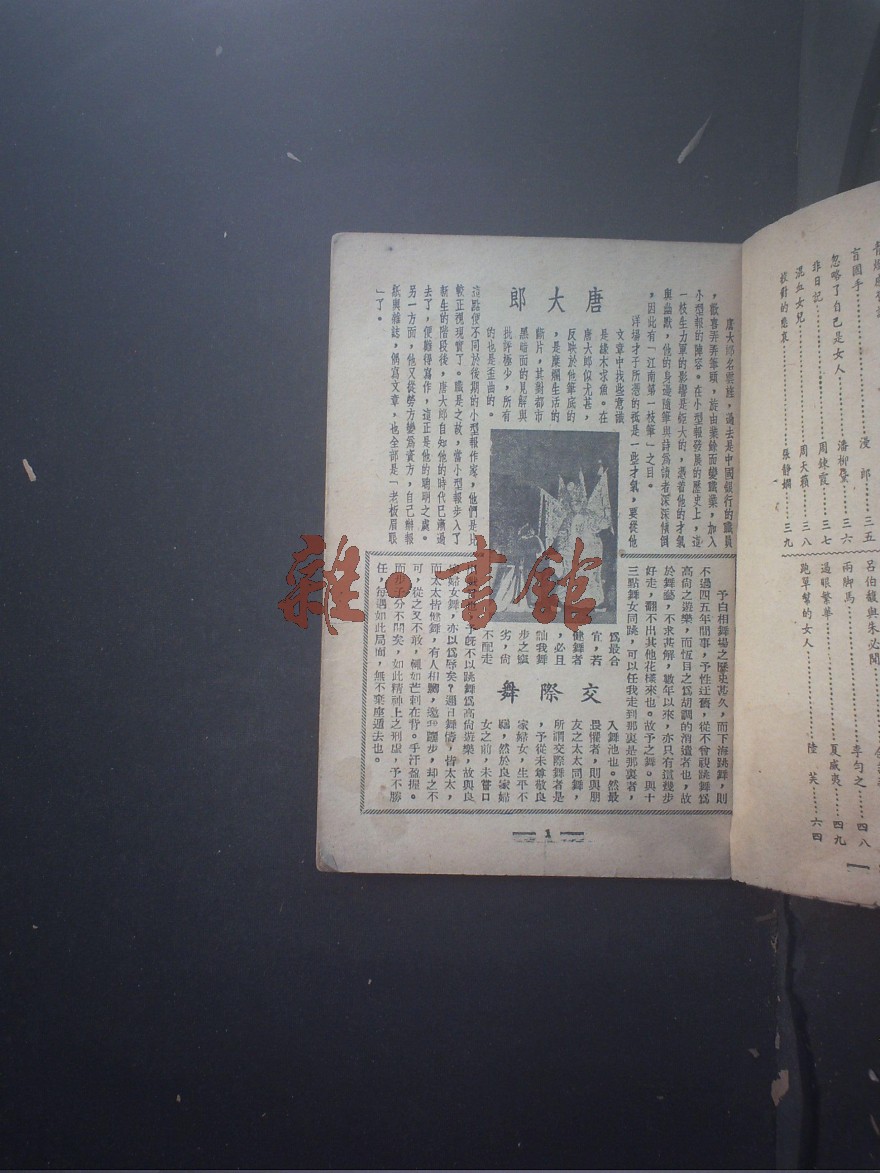 唐大郎
唐大郎名雲旌,過去是中國銀行的職員
,歡喜弄弄筆頭,旋由業餘而變職業,加入
小型報的陣容。在小型報發展的歷史上,這
一枝生力軍的影響是鉅大的,憑着他的才氣
與幽默,他的身邊隨筆與詩爲讀者深深傾倒
,因此有「江南第一枝筆」之目。
洋場才子所憑的祇是一些才氣,要從他
文章中找些意識
是緣木求魚。在
唐大郎似尤甚,
反映於他筆底的
,是糜爛生活的
斷片,其對都市
黑暗面的見解與
批評極少,所有
的也是歪曲的。
這點便不同於後期的小型報作家,他們是比
較正視現實了。職是之故,當小型報步入了
新生的階段後,唐大郎自知他的時代已漸過
去了,便難得寫作,這正是他的聰明之處。
另一方面,他又從勞方變爲資方,自己辦報
紙興雜誌,偶寫文章,也全部是「老板眉眼
」了。
交際舞
予白相舞場之歷史甚久,而下海跳舞,則
不過四五年間事,予性迂舊,從不曾視跳舞爲
高尚之遊樂,而恆目之爲胡調的消遣者也,故
於舞藝,不求甚解,數年以來,亦只有這幾步
好走,翻不出其他花樣來也。故予之舞。與十
三點舞女同跳,可以任我走到那裏是那裏者,
爲最合
宜,若
健舞者
,必且
訕我舞
步之窳
劣,尙
不配走
入舞池也。然最
畏懼者,則與朋
友之太太同舞,
所謂交際舞者是
,予從未尊敬良
家婦女,生平不
予既不以跳舞爲高尚遊樂,故與良
家婦女舞,亦以爲辱矣?邇日舞儔,皆太太,
而太太皆健舞,有人相勸,邀予躍步,却之不
可,從之又不敢,輒如芒刺在背。手汗盈握。
而步子分不開矣,如此精神上之刑虐,予不勝
任,每遇如此局面,無不棄座遁去也。
1
盲國手
漫郎
三五
忽略了自己是女人
潘柳黛
三六
非日記
周鍊霞
三七
混血女兒
周天籟
三八
投對的悲哀
張靜嫻
三九
呂伯馥與朱必聞
雨脚馬
李勻之
四八
過眼繁華
夏威夷
四九
跑單幫的女人
陸笑
六四
雜·書館